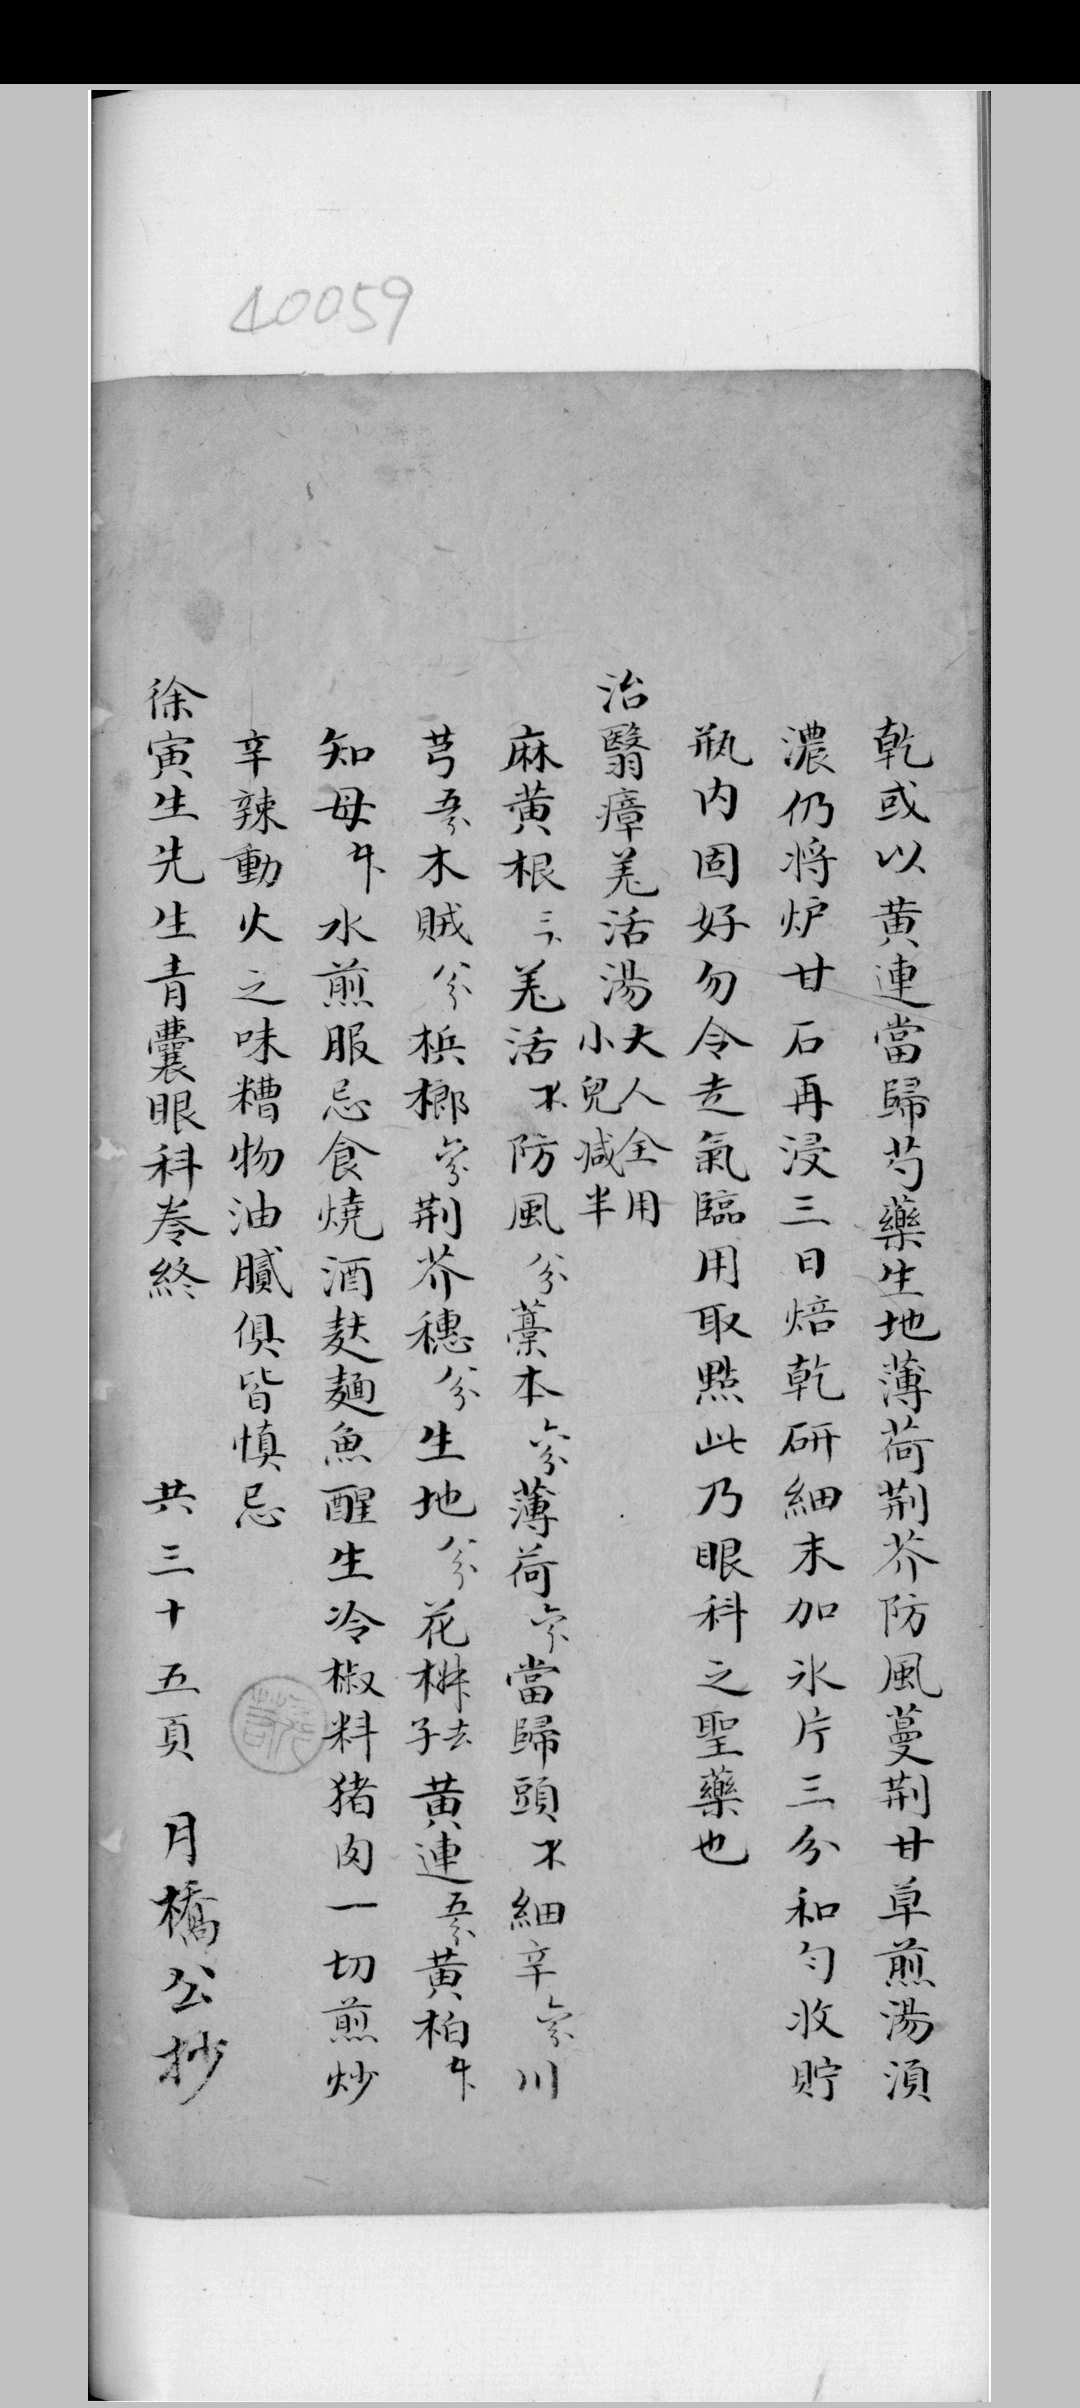 40059
乾或以黄連當歸芍藥生地薄荷荆芥防風蔓荆甘草煎湯須
濃仍将炉甘石再浸三日焙乾研細末加氷片三分和匀收貯
瓶内固好勿令走氣臨用取點此乃眼科之聖藥也
治翳瘴羌活湯大人全用小兒减半
麻黄根羌活防風藁本薄荷當歸頭細辛川
芎木賊槟榔荆芥穗生地花椒去子黄連黄柏
知母水煎服忌食燒酒麸麺魚醒生冷椒料猪肉一切煎炒
辛辣動火之味糟物油膩俱皆慎忌
徐寅生先生青囊眼科卷終 共三十五頁 月橋公抄